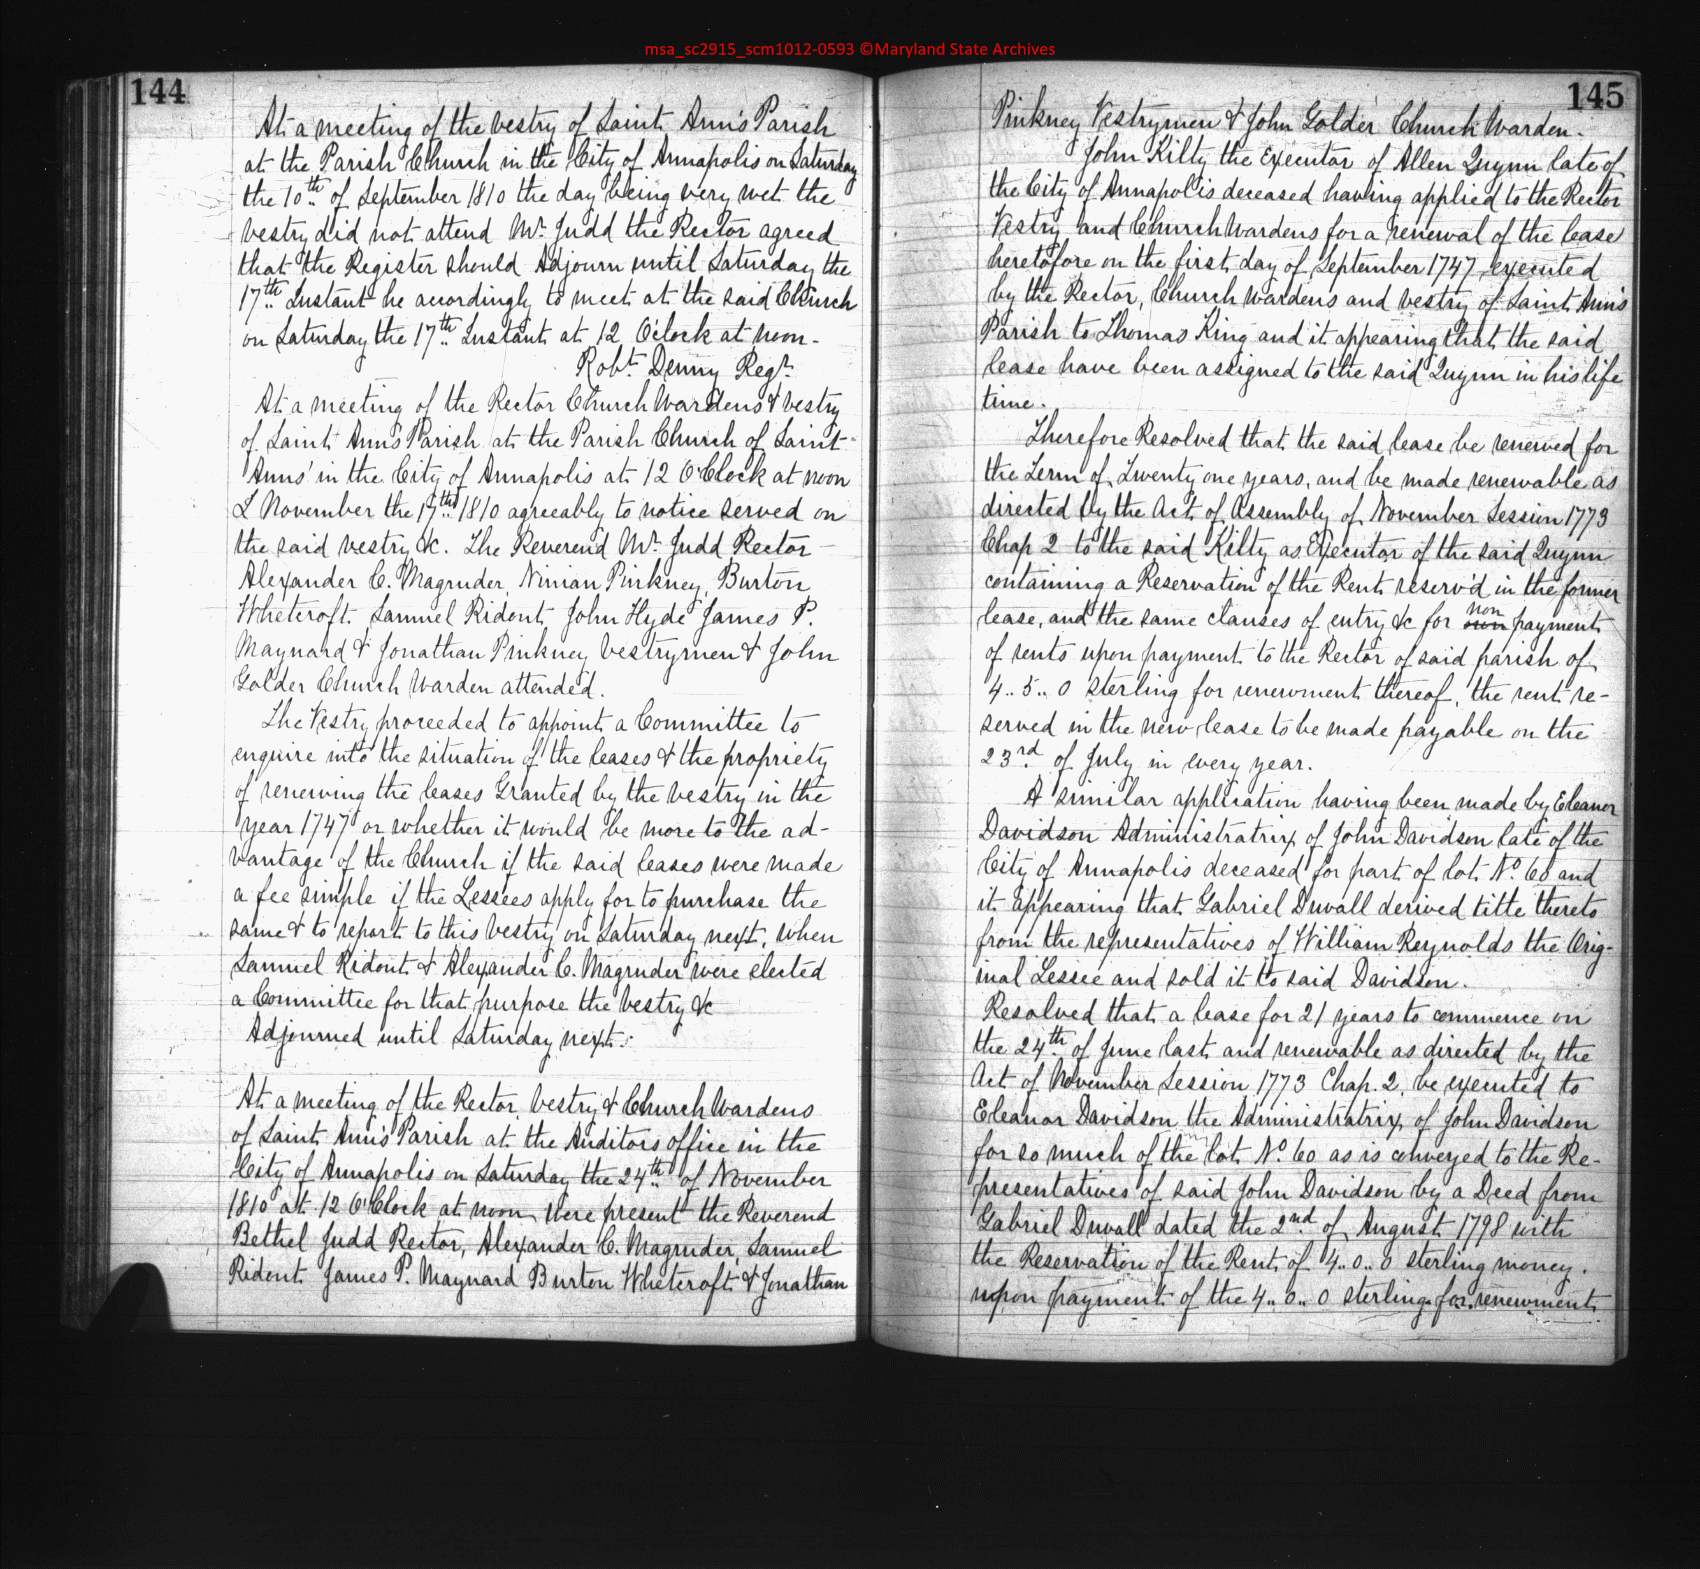 msa_sc2915_scm1012-0593 ©Maryland State Archives
144
At a meeting of the vestry of Saint Ann's Parish
at the Parish Church in the City of Annapolis on Saturday
the 10th of September 1810 the day being very wet the
vestry did not attend Mr. Judd the Rector agreed
that the Register should Adjourn until Saturday the
17th Instant he accordingly to meet at the said Church
on Saturday the 17th Instant at 12 Oclock at noon.
Robt. Denny Regr.
At a meeting of the Rector Church Wardens & vestry
of Saint Ann's Parish at the Parish Church of Saint-
Anns' in the City of Annapolis at 12 O'Clock at noon
November the 17th 1810 agreeably to notice served on
the said vestry &c. The Reverend Mr. Judd Rector
Alexander C. Magruder, Ninian Pinkney, Burton
Whetcroft Samuel Ridout, John Hyde James P.
Maynard & Jonathan Pinkney Vestrymen & John
Golder Church Warden attended.
The Vestry proceeded to appoint a Committee to
enquire into the situation of the leases & the propriety
of renewing the leases Granted by the vestry in the
year 1747 or whether it would be more to the ad-
vantage of the Church if the said leases were made
a fee simple if the Lessees apply for to purchase the
same & to report to this Vestry on Saturday next, when
Samuel Ridout & Alexander C. Magruder were elected
a Committee for that purpose the vestry &c
Adjourned until Saturday next.
At a meeting of the Rector, Vestry & Church Wardens
of Saint Ann's Parish at the Auditors office in the
City of Annapolis on Saturday the 24th of November
1810 at 12 O'Clock at noon, were present the Reverend
Bethel Judd Rector, Alexander C. Magruder, Samuel
Ridout James P. Maynard Burton Whetcroft & Jonathan
145
Pinkney Vestrymen & John Golder Church Warden.
John Kilty the Executor of Allen Quynn late of
the City of Annapolis deceased having applied to the Rector
Vestry and Church Wardens for a renewal of the lease
heretofore on the first day of September 1747 executed
by the Rector, Church Wardens and vestry of Saint Ann's
Parish to Thomas King and it appearing that the said
lease have been assigned to the said Quynn in his life
time.
Therefore Resolved that the said lease be renewed for
the Term of Twenty one years, and be made renewable as
directed by the Act of Assembly of November Session 1773
Chap 2 to the said Kilty as Executor of the said Quynn
containing a Reservation of the Rent reserv'd in the former
lease, and the same clauses of entry &c for non payment
of rents upon payment to the Rector of said parish of
4.. 5.. 0 sterling for renewment thereof, the rent re-
served in the new lease to be made payable on the
23rd of July in every year.
A similar application having been made by Eleanor
Davidson Administratrix of John Davidson late of the
City of Annapolis deceased for part of lot No. 60 and
it appearing that Gabriel Duvall derived title thereto
from the representatives of William Reynolds the Orig-
inal Lessee and sold it to said Davidson.
Resolved that a lease for 21 years to commence on
the 24th of June last and renewable as directed by the
Act of November Session 1773 Chap. 2, be executed to
Eleanor Davidson the Administratrix of John Davidson
for so much of the lot No. 60 as is conveyed to the Re-
presentatives of said John Davidson by a Deed from
Gabriel Duvall dated the 2nd of August 1798 with
the Reservation of the Rent of 4.. 0.. 0 sterling money.
upon payment of the 4.. 0.. 0 sterling for renewment